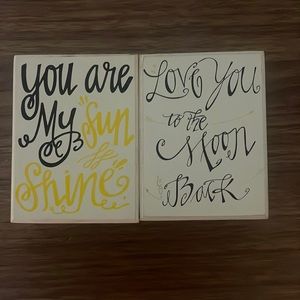 You are
My "Sun
Shine"
Love You
to the
Moon
& Back